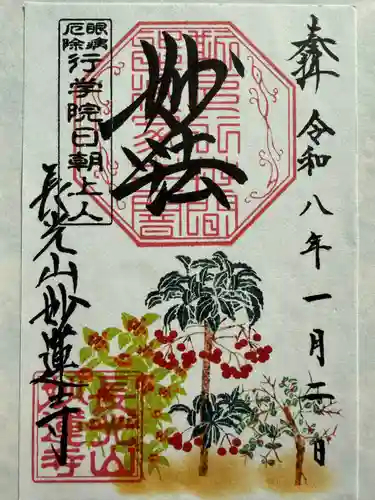 奉拝
令和八年一月二日
妙法
眼病
厄除
行学院日朝上人
長光山妙蓮寺
長光山
妙蓮寺